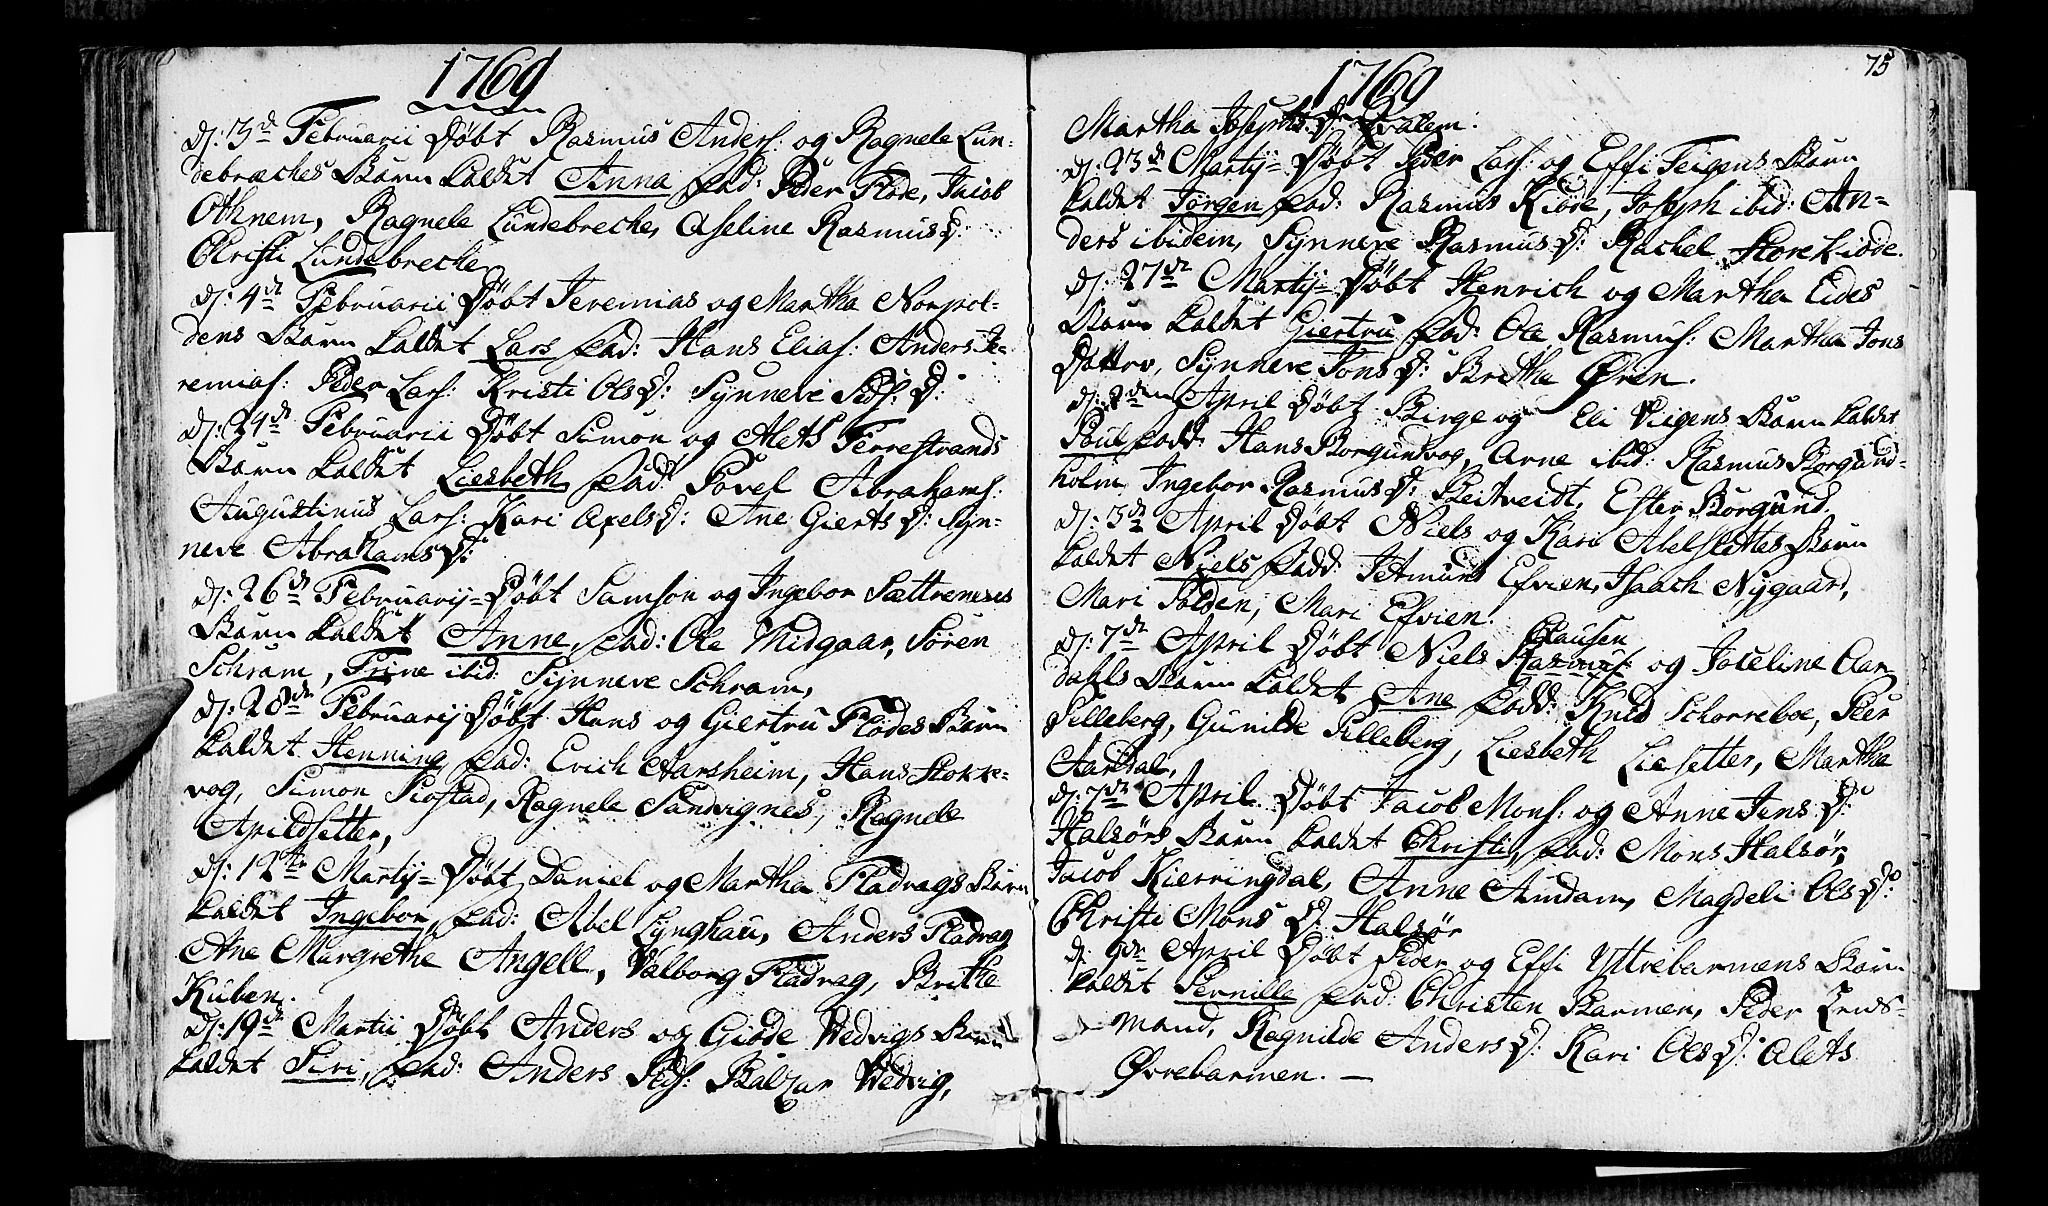 1769
D: 3d Februarii Døbt Rasmus Anders: og Ragnele Lun-
debræches Barn kaldet Anna fad: Peder Fløe, Jacob
Othnem, Ragnele Lundebreche, Aseline Rasmus D:
Christi Lundebreche
D: 4de Februarii Døbt Jeremias og Martha Norpol-
dens Barn kaldet Lars fad: Hans Elias: Anders Je-
remias: Peder Lars: Kristi Ols D: Synneve Peds: D:
D: 24de Februarii Døbt Simon og Alets Ferrestrands
Barn kaldet Liesbeth fad: Povel Abrahams:
Augustinus Lars: Kari Axels D: Ane Gierts D: Syn-
neve Abrahams D:
D: 26de Februarij Døbt Samson og Ingebor Sættrenæses
Barn kaldet Anne, fad: Ole Midgaar, Søren
Schram, Trine ibid: Synneve Schram,
D: 28de Februarij Døbt Hans og Giertru Flødes Barn
kaldet Henning fad: Erich Aarsheim, Hans Stokke-
vog, Simon Siøstad, Ragnele Sandvignes, Ragnele
Apildsetter,
D: 12te Martij Døbt Daniel og Martha Fladrags Barn
kaldet Ingebor, fad: Abel Lynghau, Anders Fladrag
Ane Margrethe Angell, Valborg Fladrag, Brithe
Kuben.
D: 19de Martii Døbt Anders og Giøde Wedvigs Barn
kaldet Siri, fad: Anders Peds: Balzar Wedvig,
1769
75
Martha Josephs D: Qvalem.
D: 23de Martij Døbt Peder Lars: og Effi Teigens Barn
kaldet Jørgen fad: Rasmus Kiøde, Joseph ibid: An-
ders ibidem, Synneve Rasmus D: Rachel Store Kiøde.
D: 27de Martij Døbt Henrich og Martha Eides
Barn kaldet Giertru fad: Ole Rasmus: Martha Jons
Dotter, Synneve Jons D: Britha Øren.
D: 2den April Døbt Birge og Eli Viigens Barn kaldet
Poul fadd: Hans Borgundvog, Arne ibid: Rasmus Borgund-
holm Ingebor Rasmus D: Beitveidt, Ester Borgund.
D: 3de April Døbt Niels og Kari Abelsettes Barn
kaldet Niels fadd: Jetmund Efvien, Isaach Nygaard,
Mari Polden, Mari Efvien.
Clausen
D: 7de April Døbt Niels Rasmus: og Joceline Aar
dahls Barn kaldet Ane fadd: Knud Schorreboe, Peer
Pilleberg, Gunilde Pilleberg, Liesbeth Liesetter, Martha
Aardal,
D: 7de April Døbt Jacob Mons: og Anne Jens D:
Halsørs Barn kaldet Christi, fad: Mons Halsør,
Jacob Kierringdal, Anne Aamdam, Magdeli Ols D:
Christi Mons D: Halsør
D: 9de April Døbt Peder og Effi Yttrebarmens Barn
kaldet Pernille fad: Christen Barmen, Peder Lens-
mand, Ragnilde Anders D: Kari Ols D: Alets
Øvrebarmen.